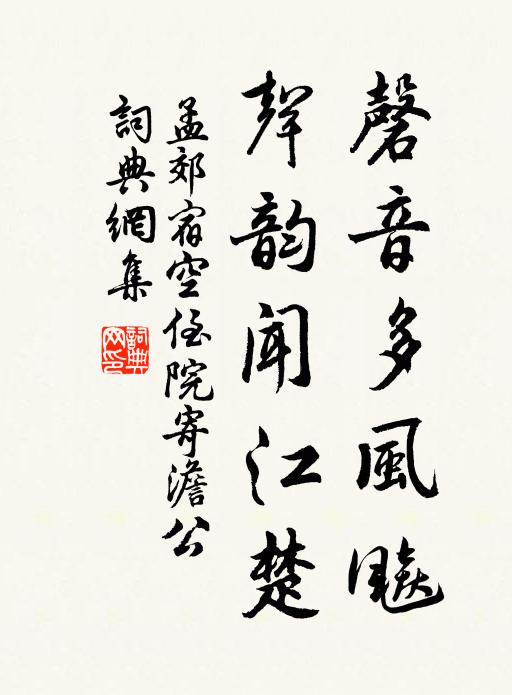 磬音多風飈
聲韵聞江楚
孟郊宿空侄院寄澹公
詞典網集
詞典
网印